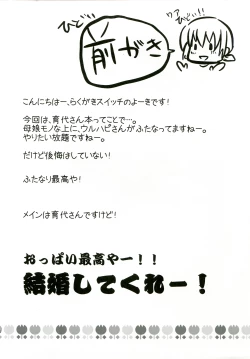 ひどい
前がき
ワァ
ひどい!!
こんにちはー、らくがきスイッチのよーきです!
今回は、育代さん本ってことで…。
母娘モノな上に、ウルハピさんがふたなってますねー。
やりたい放題ですねー。
だけど後悔はしていない!
ふたなり最高や!
メインは育代さんですけど!
おっぱい最高やー!!
結婚してくれー!